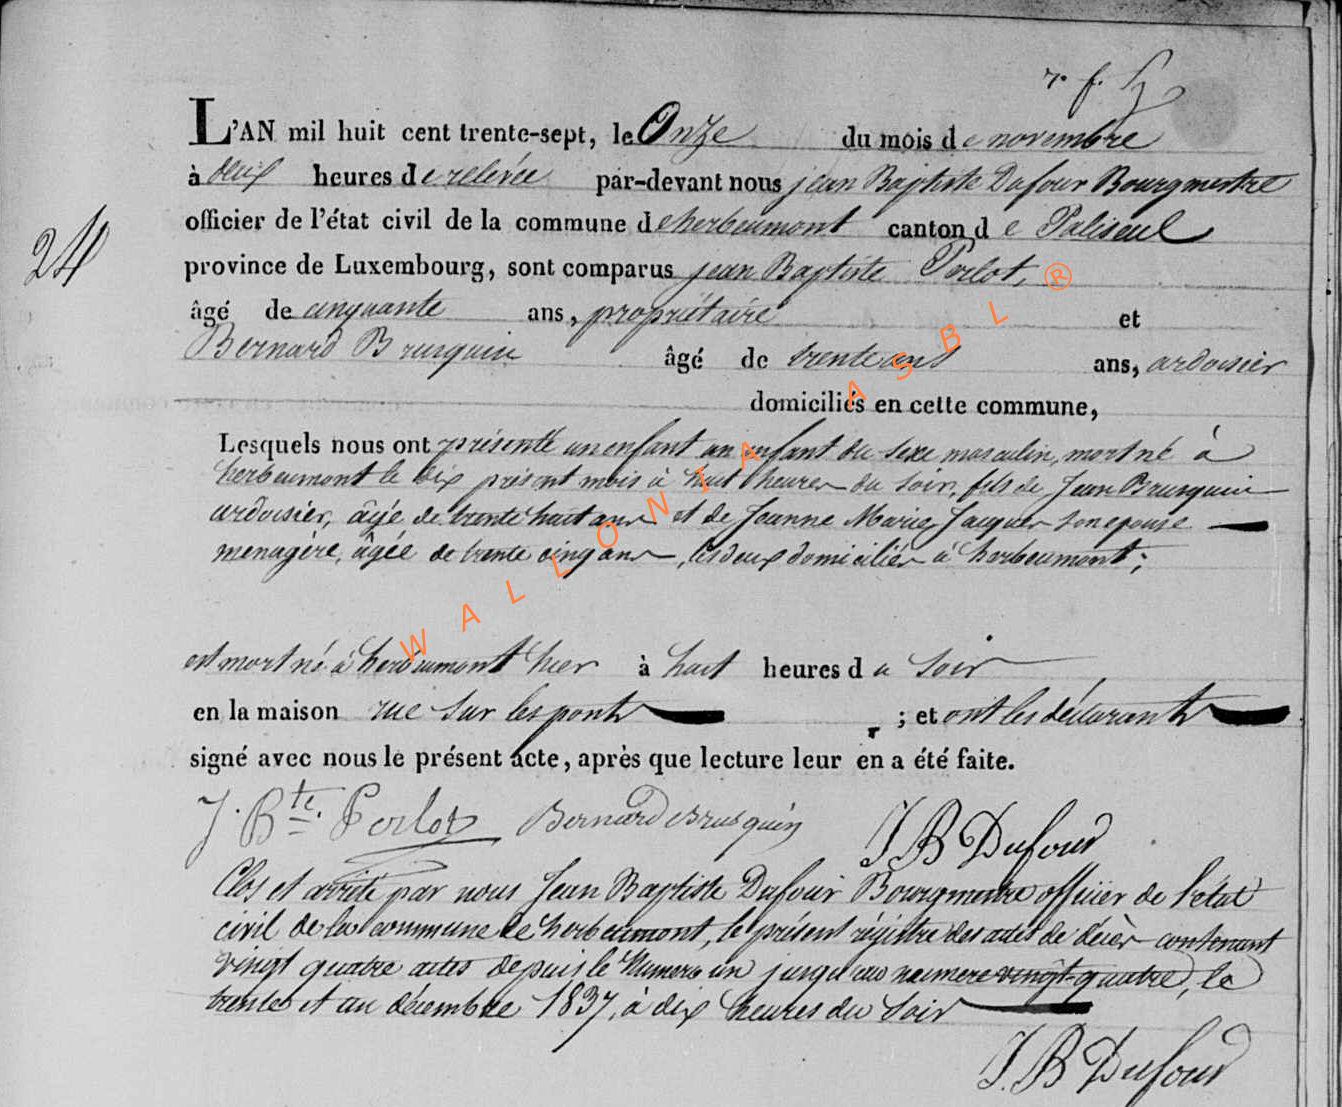 L'AN mil huit cent trente-sept, le Onze du mois de novembre
à deux heures de relevée par-devant nous jean Baptiste Dufour Bourgmestre
officier de l'état civil de la commune de herbeumont canton de Paliseul
24
province de Luxembourg, sont comparus jean Baptiste Perlot,
âgé de cinquante ans, propriétaire et
Bernard Brusquin âgé de trente ans ans, ardoisier
domiciliés en cette commune,
Lesquels nous ont présenté un enfant un enfant du sexe masculin, mort né à
herbeumont le dix présent mois à huit heures du soir, fils de Jean Brusquin
ardoisier, âgé de trente huit ans et de Jeanne Marie Jacques son epouse
menagère, âgée de trente cinq ans, les deux domiciliés à herbeumont;
est mort né à herbeumont hier à huit heures du soir
en la maison rue sur les ponts ; et ont les déclarants
signé avec nous le présent acte, après que lecture leur en a été faite.
J. Bte. Perlot Bernard Brusquin J B Dufour
Clos et arrêté par nous Jean Baptiste Dufour Bourgmestre officier de l'état
civil de la commune de herbeumont, le présent régistre des actes de décès contenant
vingt quatre actes depuis le Numero un jusqu'au numero vingt-quatre, le
trente et un décembre 1837, à dix heures du soir
J. B Dufour
WALLONIA ASBL ®